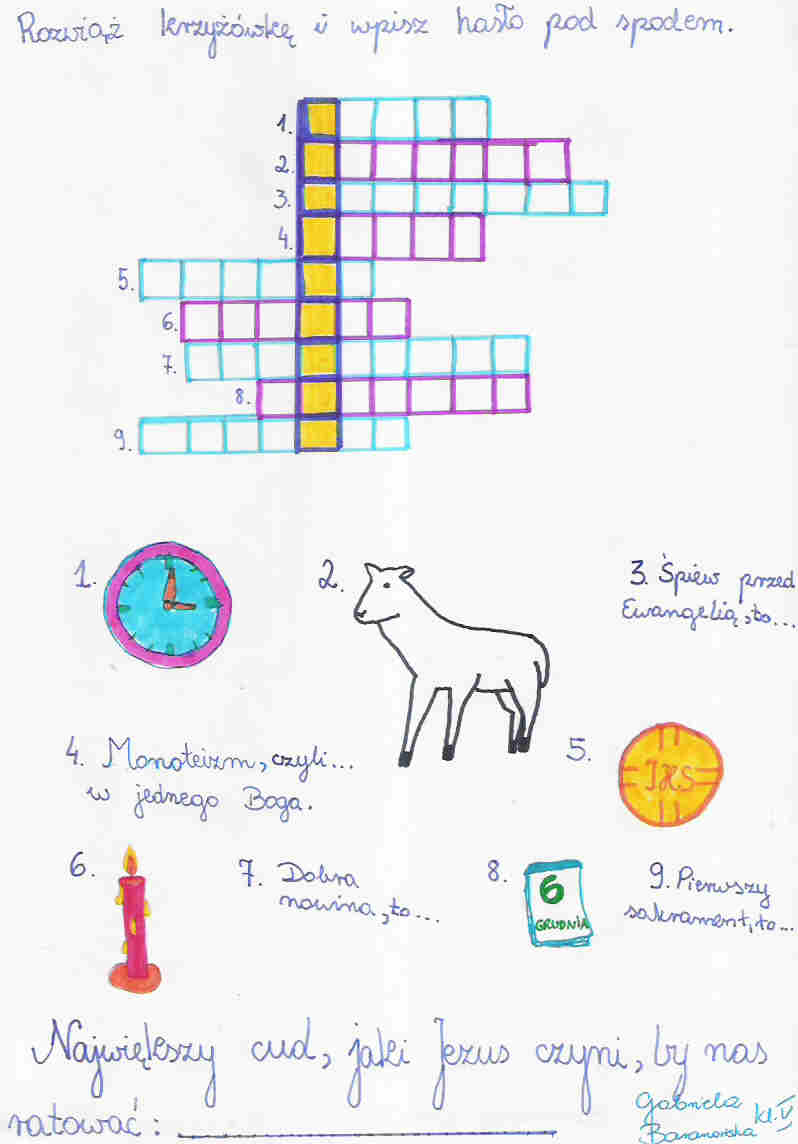 Rozwiąż krzyżówkę i wpisz hasło pod spodem.
1.
2.
3.
4.
5.
6.
7.
8.
9.
1.
2.
3. Śpiew przed
Ewangelią, to...
4. Monoteizm, czyli...
w jednego Boga.
5.
JHS
6.
7. Dobra
nowina, to...
8.
6
GRUDNIA
9. Pierwszy
sakrament, to...
Największy cud, jaki Jezus czyni, by nas
ratować:
Gabriela
Baranowska kl. V